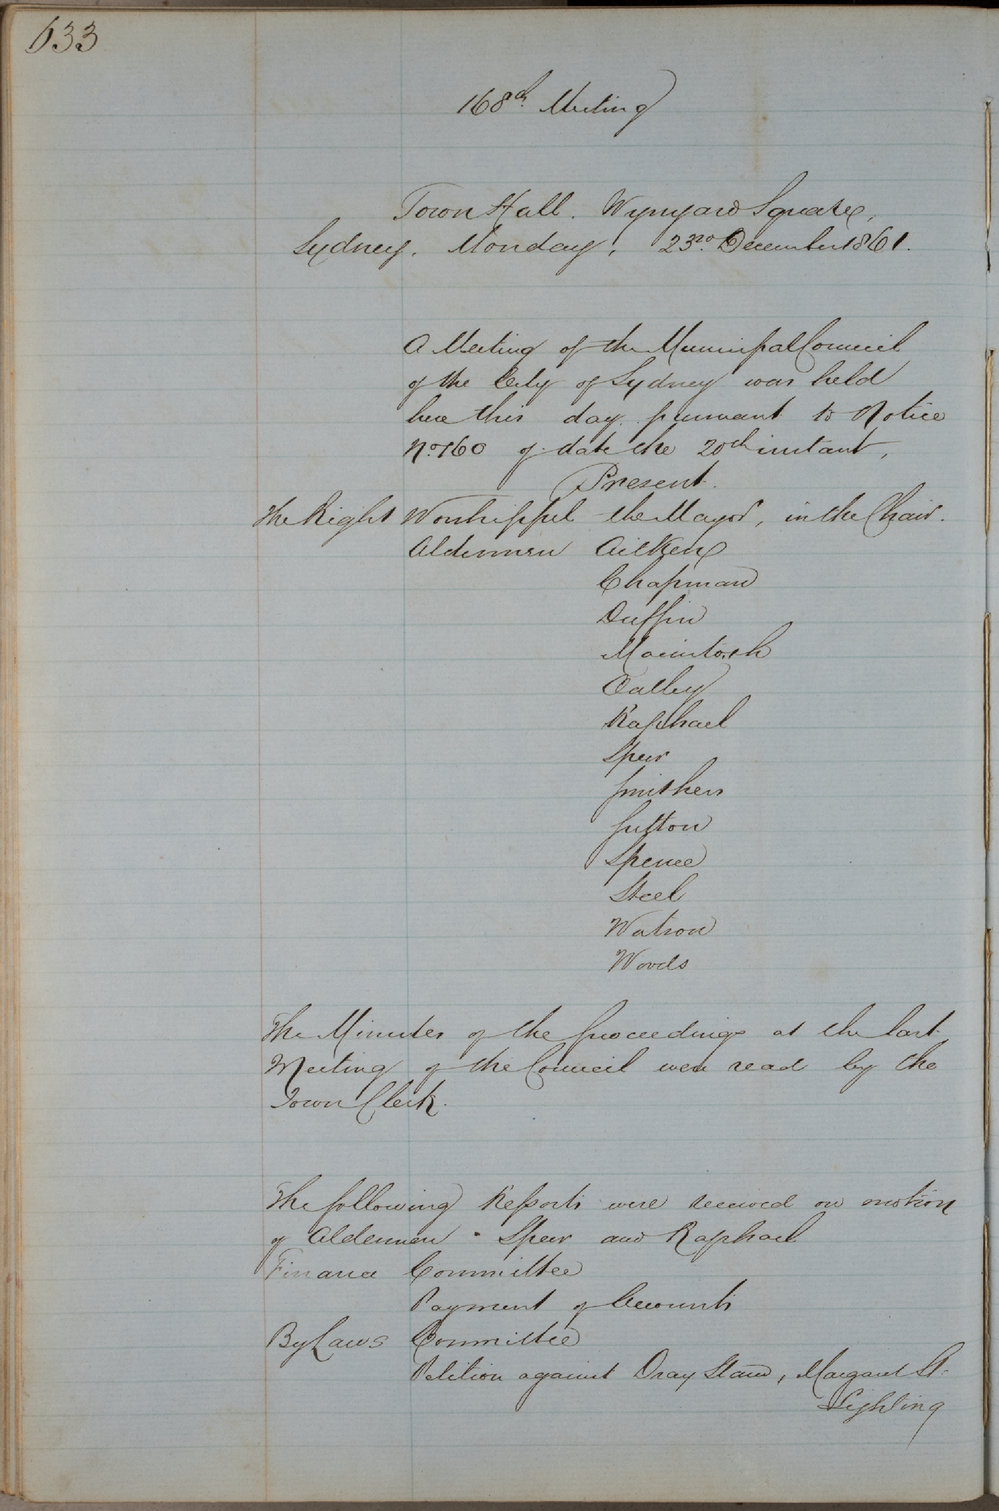 633
168th. Meeting
Town Hall. Wynyard Square,
Sydney. Monday, 23rd. December 1861.
A Meeting of the Municipal Council
of the City of Sydney was held
here this day pursuant to Notice
No. 160 of date the 20th instant,
Present.
The Right Worshipful the Mayor, in the Chair.
Aldermen Aitken
Chapman
Duffin
Macintosh
Oatley
Raphael
Speer
Smithers
Sutton
Spence
Steel
Watson
Woods
The Minutes of the proceedings at the last
Meeting of the Council were read by the
Town Clerk.
The following Reports were received on motion
of Aldermen - Speer and Raphael
Finance Committee
Payment of Accounts
By Laws Committee
Petition against Dray Stand, Margaret St.
Lighting